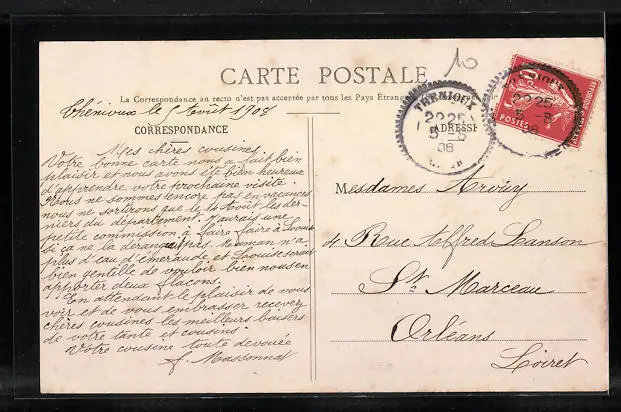 10
CARTE POSTALE
La Correspondance au recto n'est pas acceptée par tous les Pays Étrangers
Thénioux le 5 Août 1908
CORRESPONDANCE
ADRESSE
THENIOUX
22 25
5 -8
08
22 25
5 -8
08
POSTES
10
Mes chères cousines.
Votre bonne carte nous a fait bien
plaisir et nous avons été bien heureux
d'apprendre votre prochaine visite.
Nous ne sommes encore pas en vacances
nous ne sortirons que le Août les der-
niers du département. J'aurais une
petite commission à faire faire à Louise
si ça ne la derange pas. Maman n'a
plus d'eau d'émeraude et Louise serait
bien gentille de vouloir bien nous en
apporter deux flacons.
En attendant le plaisir de vous
voir et de vous embrasser recevez
chères cousines les meilleurs baisers
de votre tante et cousins.
Votre cousine toute dévouée
J. Massonnat
Mesdames Arvüy
4 Rue Alfred Lanson
St Marceau
Orléans
Loiret